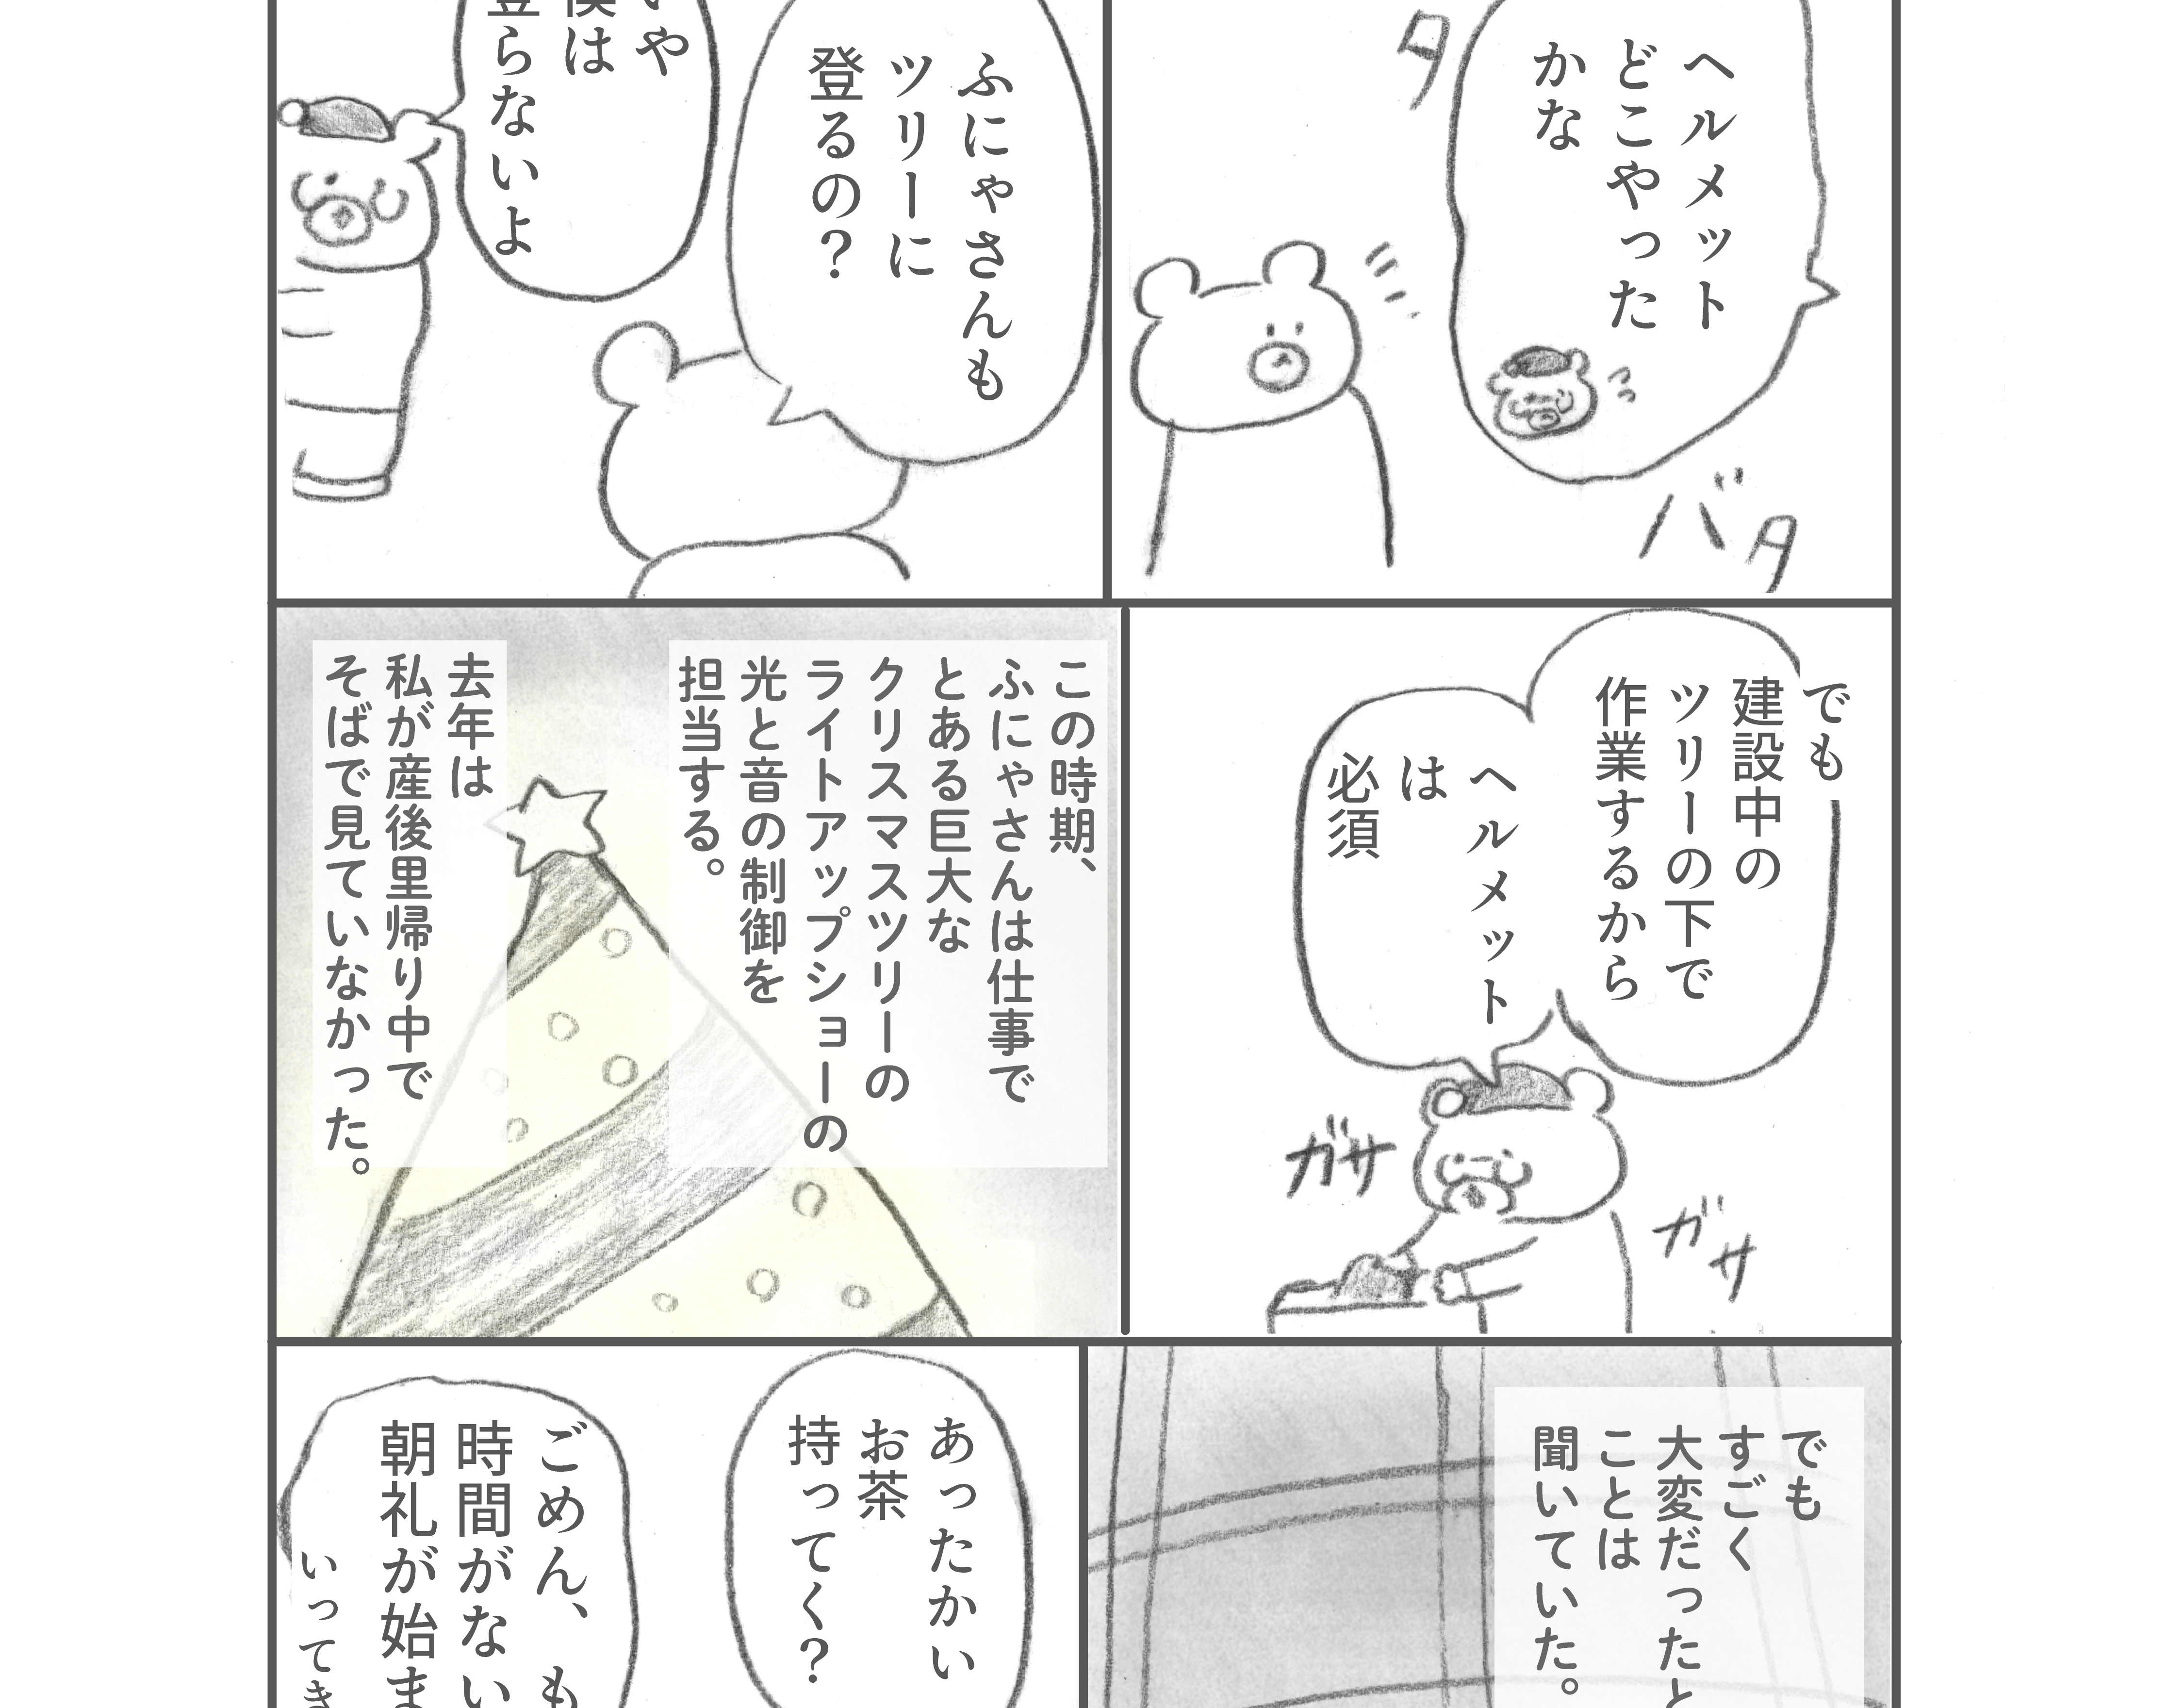 ヘルメット
どこやった
かな
タ
バタ
ふにゃさんも
ツリーに
登るの？
や
僕は
登らないよ
でも
建設中の
ツリーの下で
作業するから
ヘルメット
は
必須
ガサ
ガサ
この時期、
ふにゃさんは仕事で
とある巨大な
クリスマスツリーの
ライトアップショーの
光と音の制御を
担当する。
去年は
私が産後里帰り中で
そばで見ていなかった。
でも
すごく
大変だったと
ことは
聞いていた。
あったかい
お茶
持ってく？
ごめん、も
時間がない
朝礼が始ま
いってき